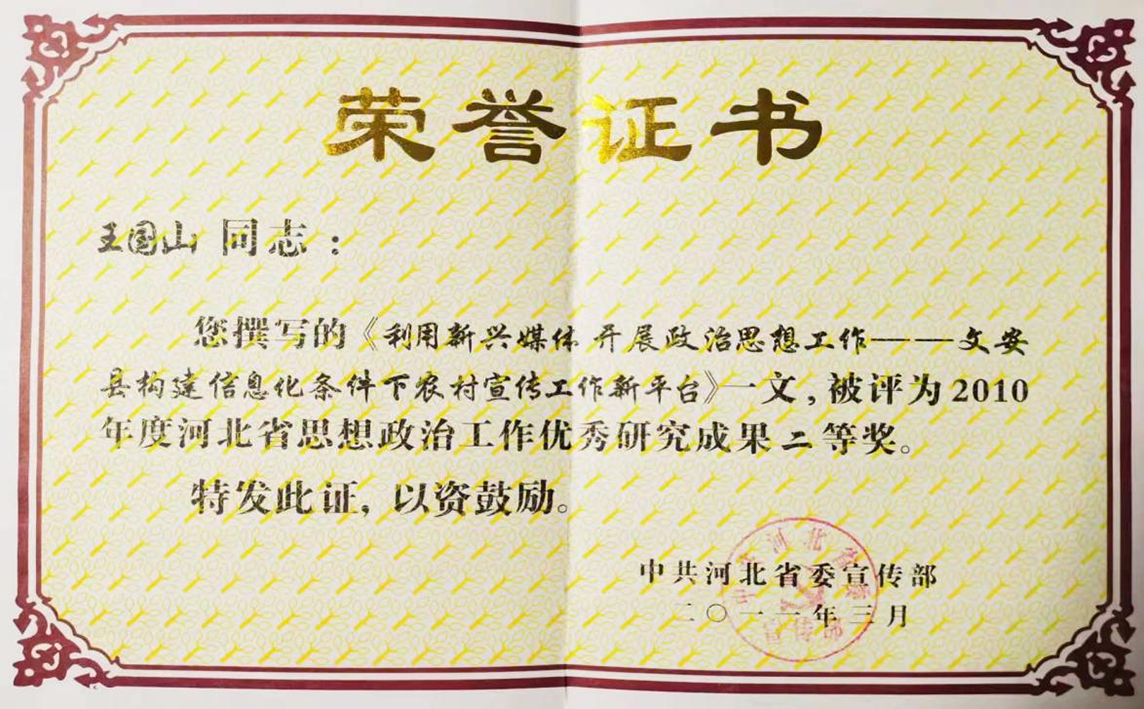 荣誉证书
王国山 同志：
您撰写的《利用新兴媒体 开展政治思想工作———文安
县构建信息化条件下农村宣传工作新平台》一文，被评为2010
年度河北省思想政治工作优秀研究成果 二 等奖。
特发此证，以资鼓励。
中共河北省委宣传部
二〇一一年三月